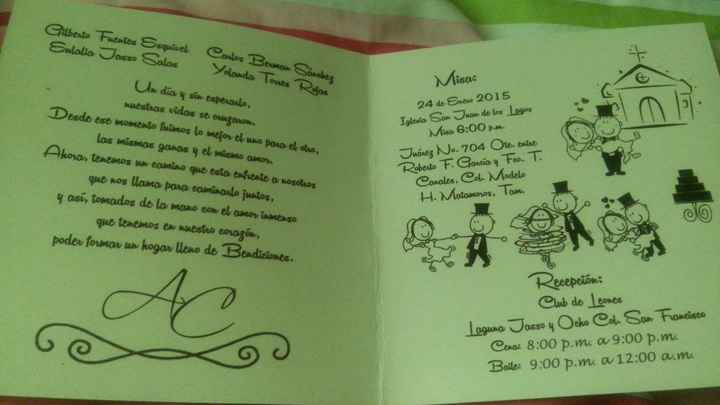 Gilberto Fuentes Esquivel
Eulalia Jasso Salas
Carlos Berman Sánchez
Yolanda Torres Rojas
Un día y sin esperarlo,
nuestras vidas se cruzaron.
Desde ese momento fuimos lo mejor el uno para el otro,
las mismas ganas y el mismo amor.
Ahora tenemos un camino que esta enfrente a nosotros
que nos llama para caminarlo juntos,
y así, tomados de la mano con el amor inmenso
que tenemos en nuestro corazón,
poder formar un hogar lleno de Bendiciones.
AC
Misa:
24 de Enero 2015
Iglesia San Juan de los Lagos
Misa 6:00 p.m.
Juárez No. 704 Ote. entre
Roberto F. García y Fco. T.
Canales, Col. Modelo
H. Matamoros, Tam.
Recepción:
Club de Leones
Laguna Jasso y Ocho Col. San Francisco
Cena: 8:00 p.m. a 9:00 p.m.
Baile: 9:00 p.m. a 12:00 a.m.